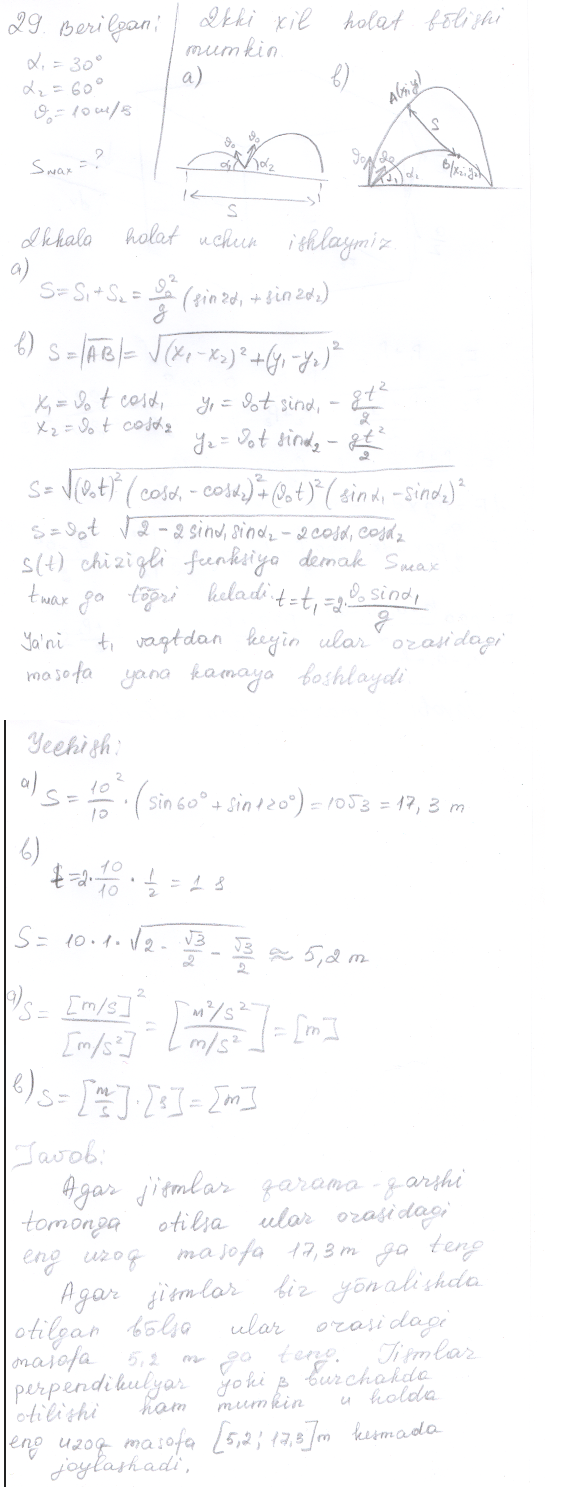 29. Berilgan:
α₁ = 30°
α₂ = 60°
ϑ₀ = 10 m/s
Smax = ?
Ikki xil holat bōlishi
mumkin
a)
ϑ₀ ϑ₀
α₁ α₂
S
b)
A(x₁;y₁)
S
B(x₂;y₂)
ϑ₀ ϑ₀
α₁ α₂
Ikkala holat uchun ishlaymiz.
a)
S = S₁ + S₂ = ϑ₀²/g (sin2α₁ + sin2α₂)
b) S = |AB| = √((x₁ - x₂)² + (y₁ - y₂)²)
x₁ = ϑ₀ t cosα₁ y₁ = ϑ₀t sinα₁ - gt²/2
x₂ = ϑ₀ t cosα₂ y₂ = ϑ₀t sinα₂ - gt²/2
S = √((ϑ₀t)² (cosα₁ - cosα₂)² + (ϑ₀t)² (sinα₁ - sinα₂)²)
S = ϑ₀t √(2 - 2sinα₁ sinα₂ - 2cosα₁ cosα₂)
S(t) chiziqli funksiya demak Smax
tmax ga tōg̃ri keladi. t = t₁ = 2·ϑ₀ sinα₁/g
Ya'ni t₁ vaqtdan keyin ular orasidagi
masofa yana kamaya boshlaydi
Yechish:
a) S = 10²/10 · (sin60° + sin120°) = 10√3 = 17,3 m
b)
t = 2·10/10 · 1/2 = 1 s
S = 10·1·√(2 - √3/2 - √3/2) ≈ 5,2 m
a) S = [m/s]²/[m/s²] = [m²/s² / m/s²] = [m]
b) S = [m/s]·[s] = [m]
Javob:
Agar jismlar qarama-qarshi
tomonga otilsa ular orasidagi
eng uzoq masofa 17,3m ga teng
Agar jismlar bir yōnalishda
otilgan bōlsa ular orasidagi
masofa 5,2 m ga teng. Jismlar
perpendikulyar yoki β burchakda
otilishi ham mumkin u holda
eng uzoq masofa [5,2; 17,3]m kesmada
joylashadi.